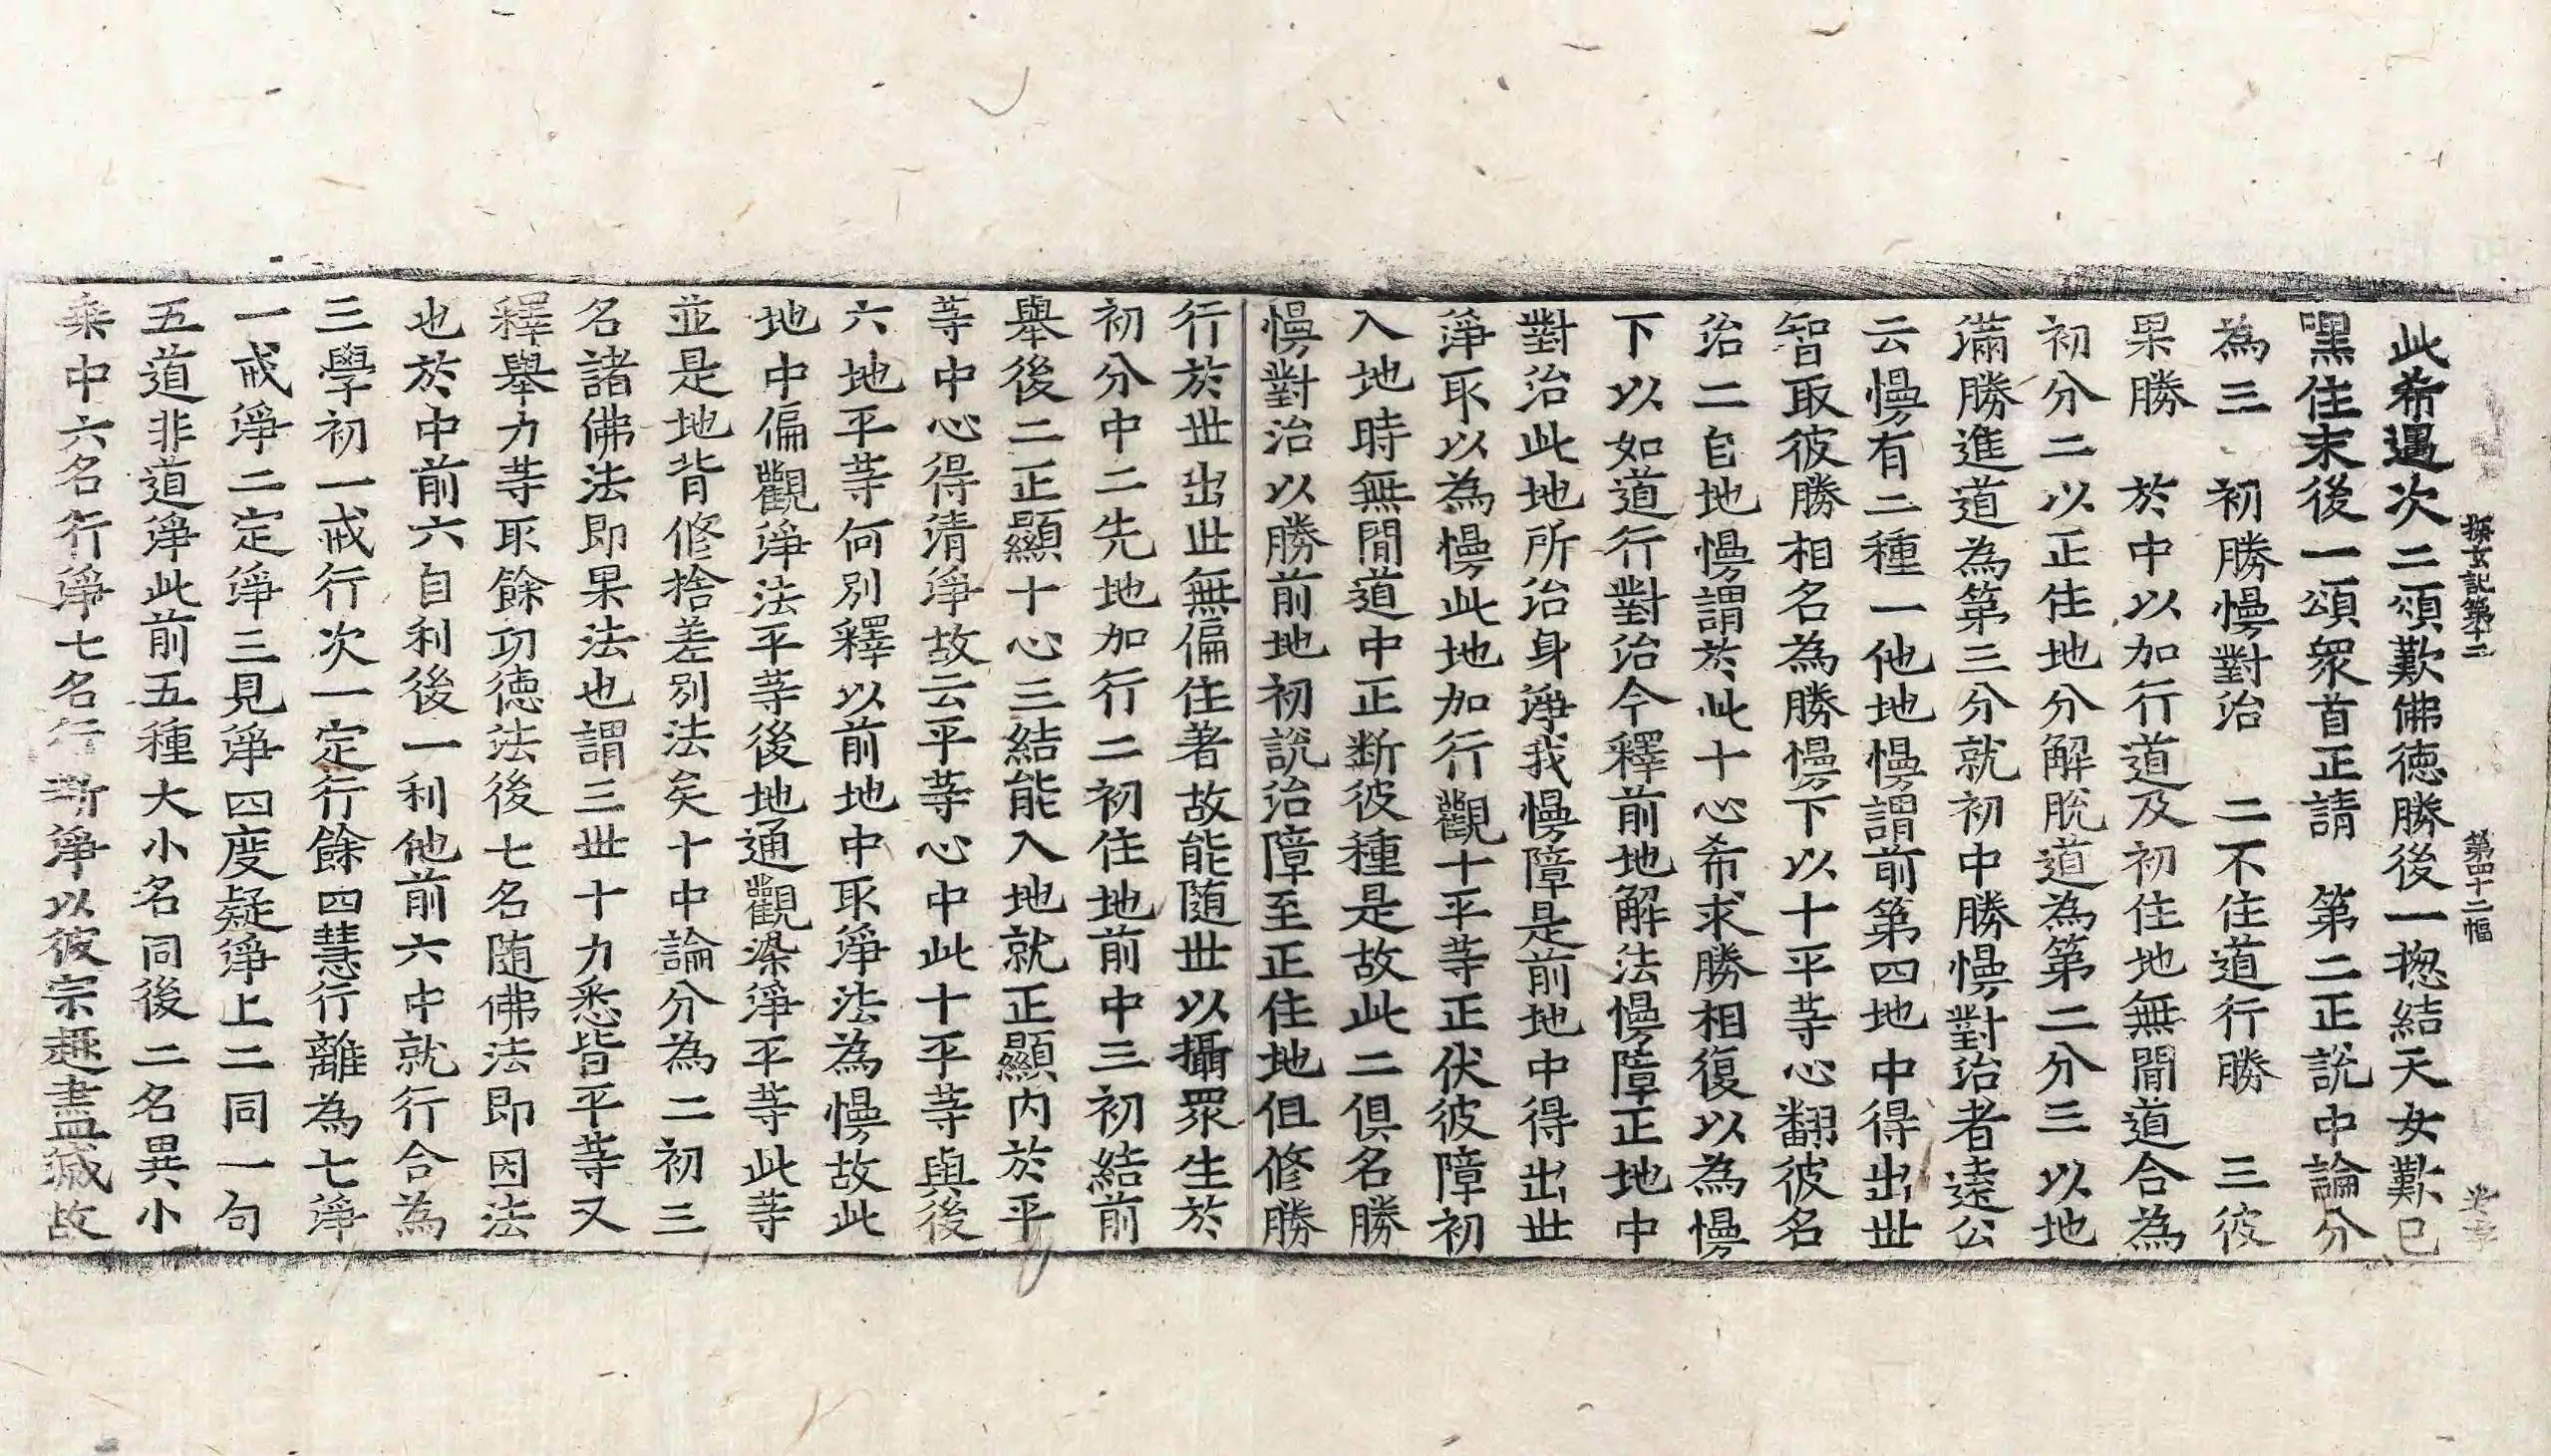 探玄記第十二 第四十二幅
此希遇次二頌歎佛德勝後一揔結天女歎已
嘿住末後一頌衆首正請 第二正說中論分
為三 初勝慢對治 二不住道行勝 三彼
果勝 於中以加行道及初住地無間道合為
初分二以正住地分解脫道為第二分三以地
滿勝進道為第三分就初中勝慢對治者遠公
云慢有二種一他地慢謂前第四地中得出世
智取彼勝相名為勝慢下以十平等心翻彼名
治二自地慢謂於此十心希求勝相復以為慢
下以如道行對治今釋前地解法慢障正地中
對治此地所治身淨我慢障是前地中得出世
淨取以為慢此地加行觀十平等正伏彼障初
入地時無間道中正断彼種是故此二俱名勝
慢對治以勝前地初說治障至正住地但修勝
行於世出世無偏住著故能随世以攝眾生於
初分中二先地加行二初住地前中三初結前
舉後二正顯十心三結能入地就正顯內於平
等中心得清淨故云平等心中此十平等與後
六地平等何別釋以前地中取淨法為慢故此
地中偏觀淨法平等後地通觀染淨平等此等
並是地背修捨差別法矣十中論分為二初三
名諸佛法即果法也謂三世十力悉皆平等又
釋舉力等取餘功德法後七名随佛法即因法
也於中前六自利後一利他前六中就行合為
三學初一戒行次一定行餘四慧行離為七淨
一戒淨二定淨三見淨四度疑淨上二同一句
五道非道淨此前五種大小名同後二名異小
乘中六名行淨七名行断淨以彼宗趣盡滅故